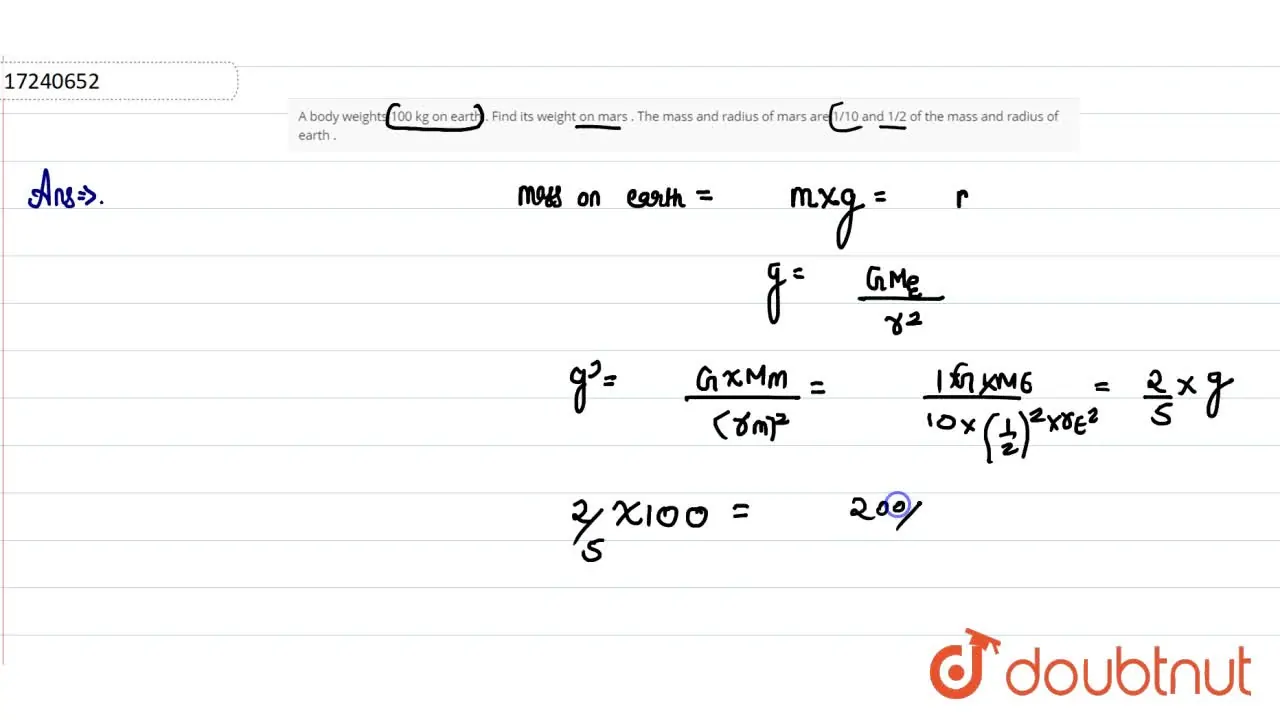 17240652
A body weights 100 kg on earth . Find its weight on mars . The mass and radius of mars are 1/10 and 1/2 of the mass and radius of
earth .
Ans⇒.
mass on earth = m×g = r
g = GME / r2
g' = G×Mm / (rm)2 = 1×G×ME / 10×(1/2)2×rE2 = 2/5 × g
2/5 ×100 = 200/
doubtnut